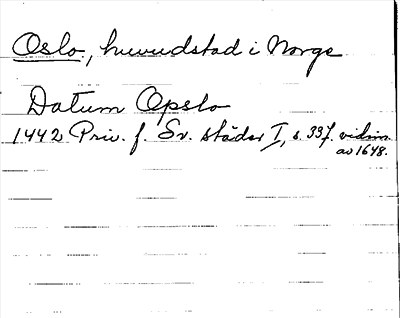 Oslo, huvudstad i Norge
Datum Opslo
1442 Priv. f. Sv. städer I, s. 337. vidim.
av 1648.